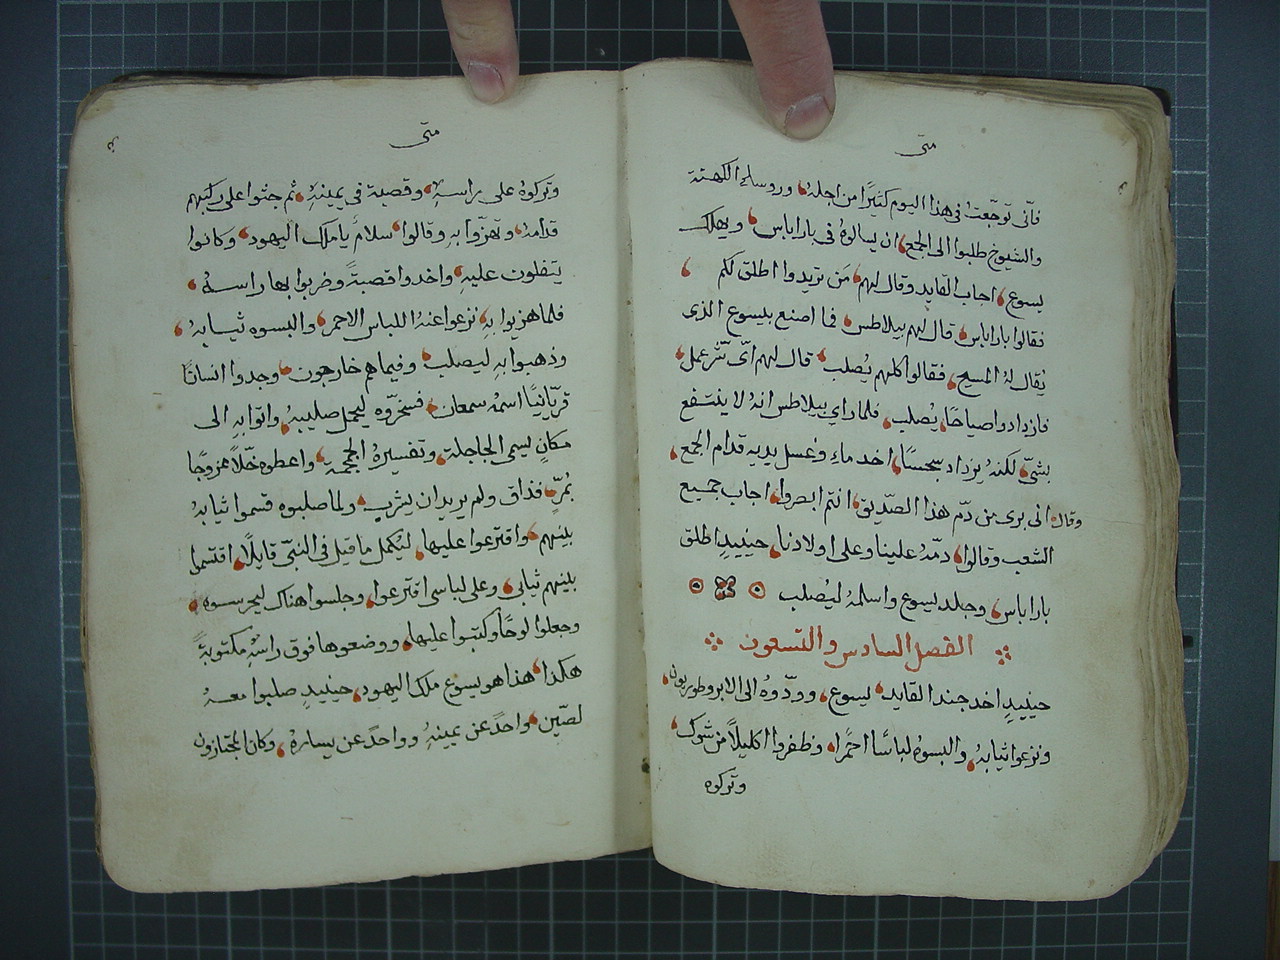 متى
فاني توجّعت في هذا اليوم كثيرًا من اجله، وروساء الكهنة
والشيوخ طلبوا الى الجمع، ان يسالوهُ في باراباس، ويهلك
يسوع، اجاب القايد وقال لهم، مَن تريدوا اطلق لكم،
فقالوا باراباس، قال لهم بيلاطس، فما اصنع بيسوع الذى
يُقال لهُ المسيح، فقالوا كلهم يُصلب، قال لهم اىّ شرّ عمل،
فازدادوا صياحًا، يُصلب، فلما راى بيلاطس انهُ لا ينتفع
بشىٍ، لكنهُ يزداد سجسًا، اخد ماءً وغسل يديه قدام الجمع،
وقال انى برى من دمّ هذا الصدّيق، انتم ابصروا، اجاب جميع
الشعب وقالوا، دمّهُ علينا وعلى اولادنا، حينيدٍ اطلق
باراباس، وجلد يسوع واسلمهُ ليُصلب
الفصل السادس والتسعون
حينيدٍ اخد جند القايد، ليسوع، وودّوهُ الى الابروطوريون،
ونزعوا ثيابهُ، والبسوهُ لباسًا احمرًا، وظفروا اكليلًا من شوك،
وتركوه
متى
وتركوهُ على راسهِ، وقصبة في يمينهِ، ثم جثوا على ركبهم
قدامهُ، وتهزّوا بهِ وقالوا، سلامٌ يا ملك اليهود، وكانوا
يتفلون عليهِ، واخدوا قصبةً وضربوا بها راسهُ،
فلما هزيوا بهِ، نزعوا عنهُ اللباس الاحمر، والبسوه ثيابهُ،
وذهبوا بهِ ليصلب، وفيما هم خارجون، وجدوا انسانًا
قريّانيًّا اسمهُ سمعان، فسخّروه ليحمل صليبهُ، واتوا بهِ الى
مكانٍ يسمى الجاجلة، وتفسيرهُ الجمجمة، واعطوه خلًّا ممزوجًا
بمُرٍّ، فذاق ولم يريد ان يشرب، ولما صلبوه قسموا ثيابهُ
بينهم، واقترعوا عليها، ليُكمل ما قيل في النبىّ قايلًا، اقتسموا
بينهم ثيابى، وعلى لباسى اقترعوا، وجلسوا هناك ليحرسوه،
وجعلوا لوحًا وكتبوا عليها، ووضعوها فوق راسهِ مكتوبةً
هكدا، هذا هو يسوع ملك اليهود، حينيدٍ صلبوا معهُ
لصّين، واحدً عن يمينهِ، وواحدً عن يسارهُ، وكان المجتازون